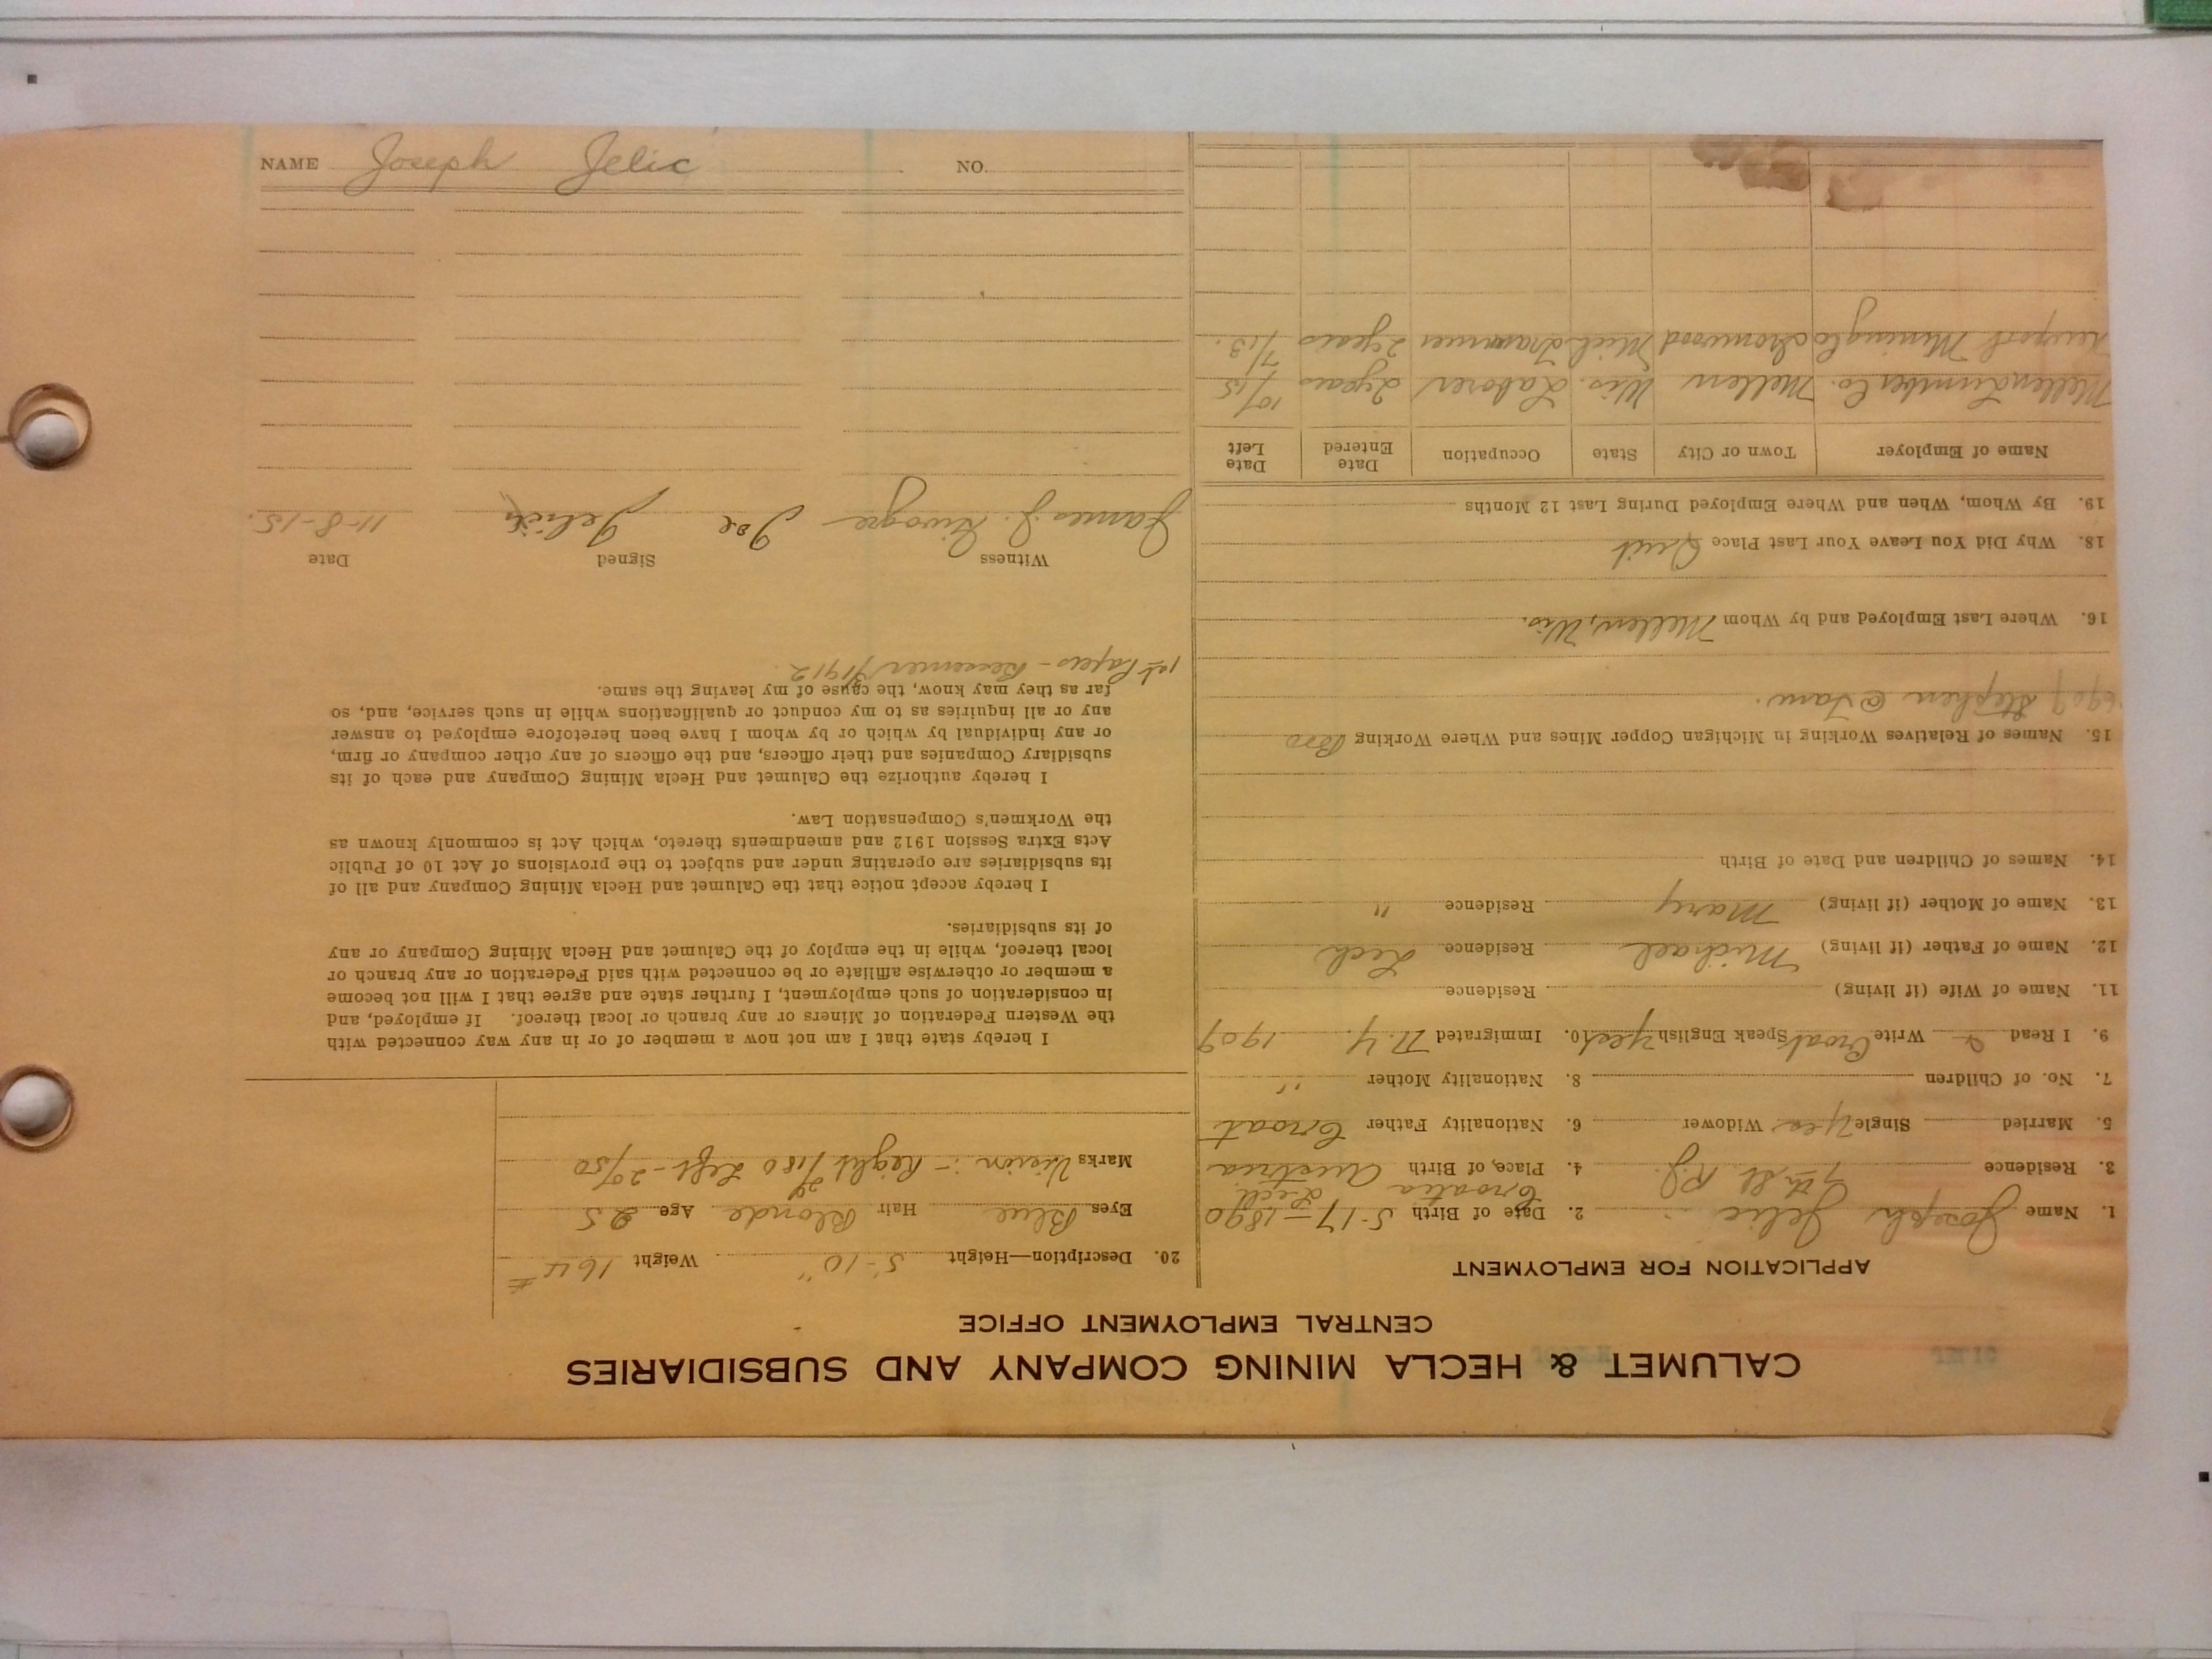 CALUMET & HECLA MINING COMPANY AND SUBSIDIARIES
CENTRAL EMPLOYMENT OFFICE
APPLICATION FOR EMPLOYMENT
1. Name Joseph Jelic 2. Date of Birth 5-17-1890
Croatia
3. Residence 7th St 4. Place of Birth Austria
5. Married Single Yes Widower 6. Nationality Father Croat
7. No. of Children 8. Nationality Mother "
9. I Read & Write Croat Speak English Yes 10. Immigrated N.Y. 1909
11. Name of Wife (if living) Residence
12. Name of Father (if living) Michael Residence
13. Name of Mother (if living) Mary Residence "
14. Names of Children and Date of Birth
15. Names of Relatives Working in Michigan Copper Mines and Where Working Bro
Stephen @ Tam.
16. Where Last Employed and by Whom Mellen, Wis.
18. Why Did You Leave Your Last Place Quit
19. By Whom, When and Where Employed During Last 12 Months
Name of Employer Town or City State Occupation Date Entered Date Left
Mellen Lumber Co. Mellen Wis. Laborer 2 years 10/15
Newport Mining Co Ironwood Mich Trammer 2 years 7/13.
20. Description—Height 5'-10" Weight 164#
Eyes Blue Hair Blonde Age 25
Marks Vision :- Right 20/180 Left - 20/50
I hereby state that I am not now a member of or in any way connected with
the Western Federation of Miners or any branch or local thereof. If employed, and
in consideration of such employment, I further state and agree that I will not become
a member or otherwise affiliate or be connected with said Federation or any branch or
local thereof, while in the employ of the Calumet and Hecla Mining Company or any
of its subsidiaries.
I hereby accept notice that the Calumet and Hecla Mining Company and all of
its subsidiaries are operating under and subject to the provisions of Act 10 of Public
Acts Extra Session 1912 and amendments thereto, which Act is commonly known as
the Workmen's Compensation Law.
I hereby authorize the Calumet and Hecla Mining Company and each of its
subsidiary Companies and their officers, and the officers of any other company or firm,
or any individual by which or by whom I have been heretofore employed to answer
any or all inquiries as to my conduct or qualifications while in such service, and, so
far as they may know, the cause of my leaving the same.
1st Papers - Bessemer 1912
Witness Signed Date
James J. Joe Jelich 11-8-15.
NAME Joseph Jelic NO.